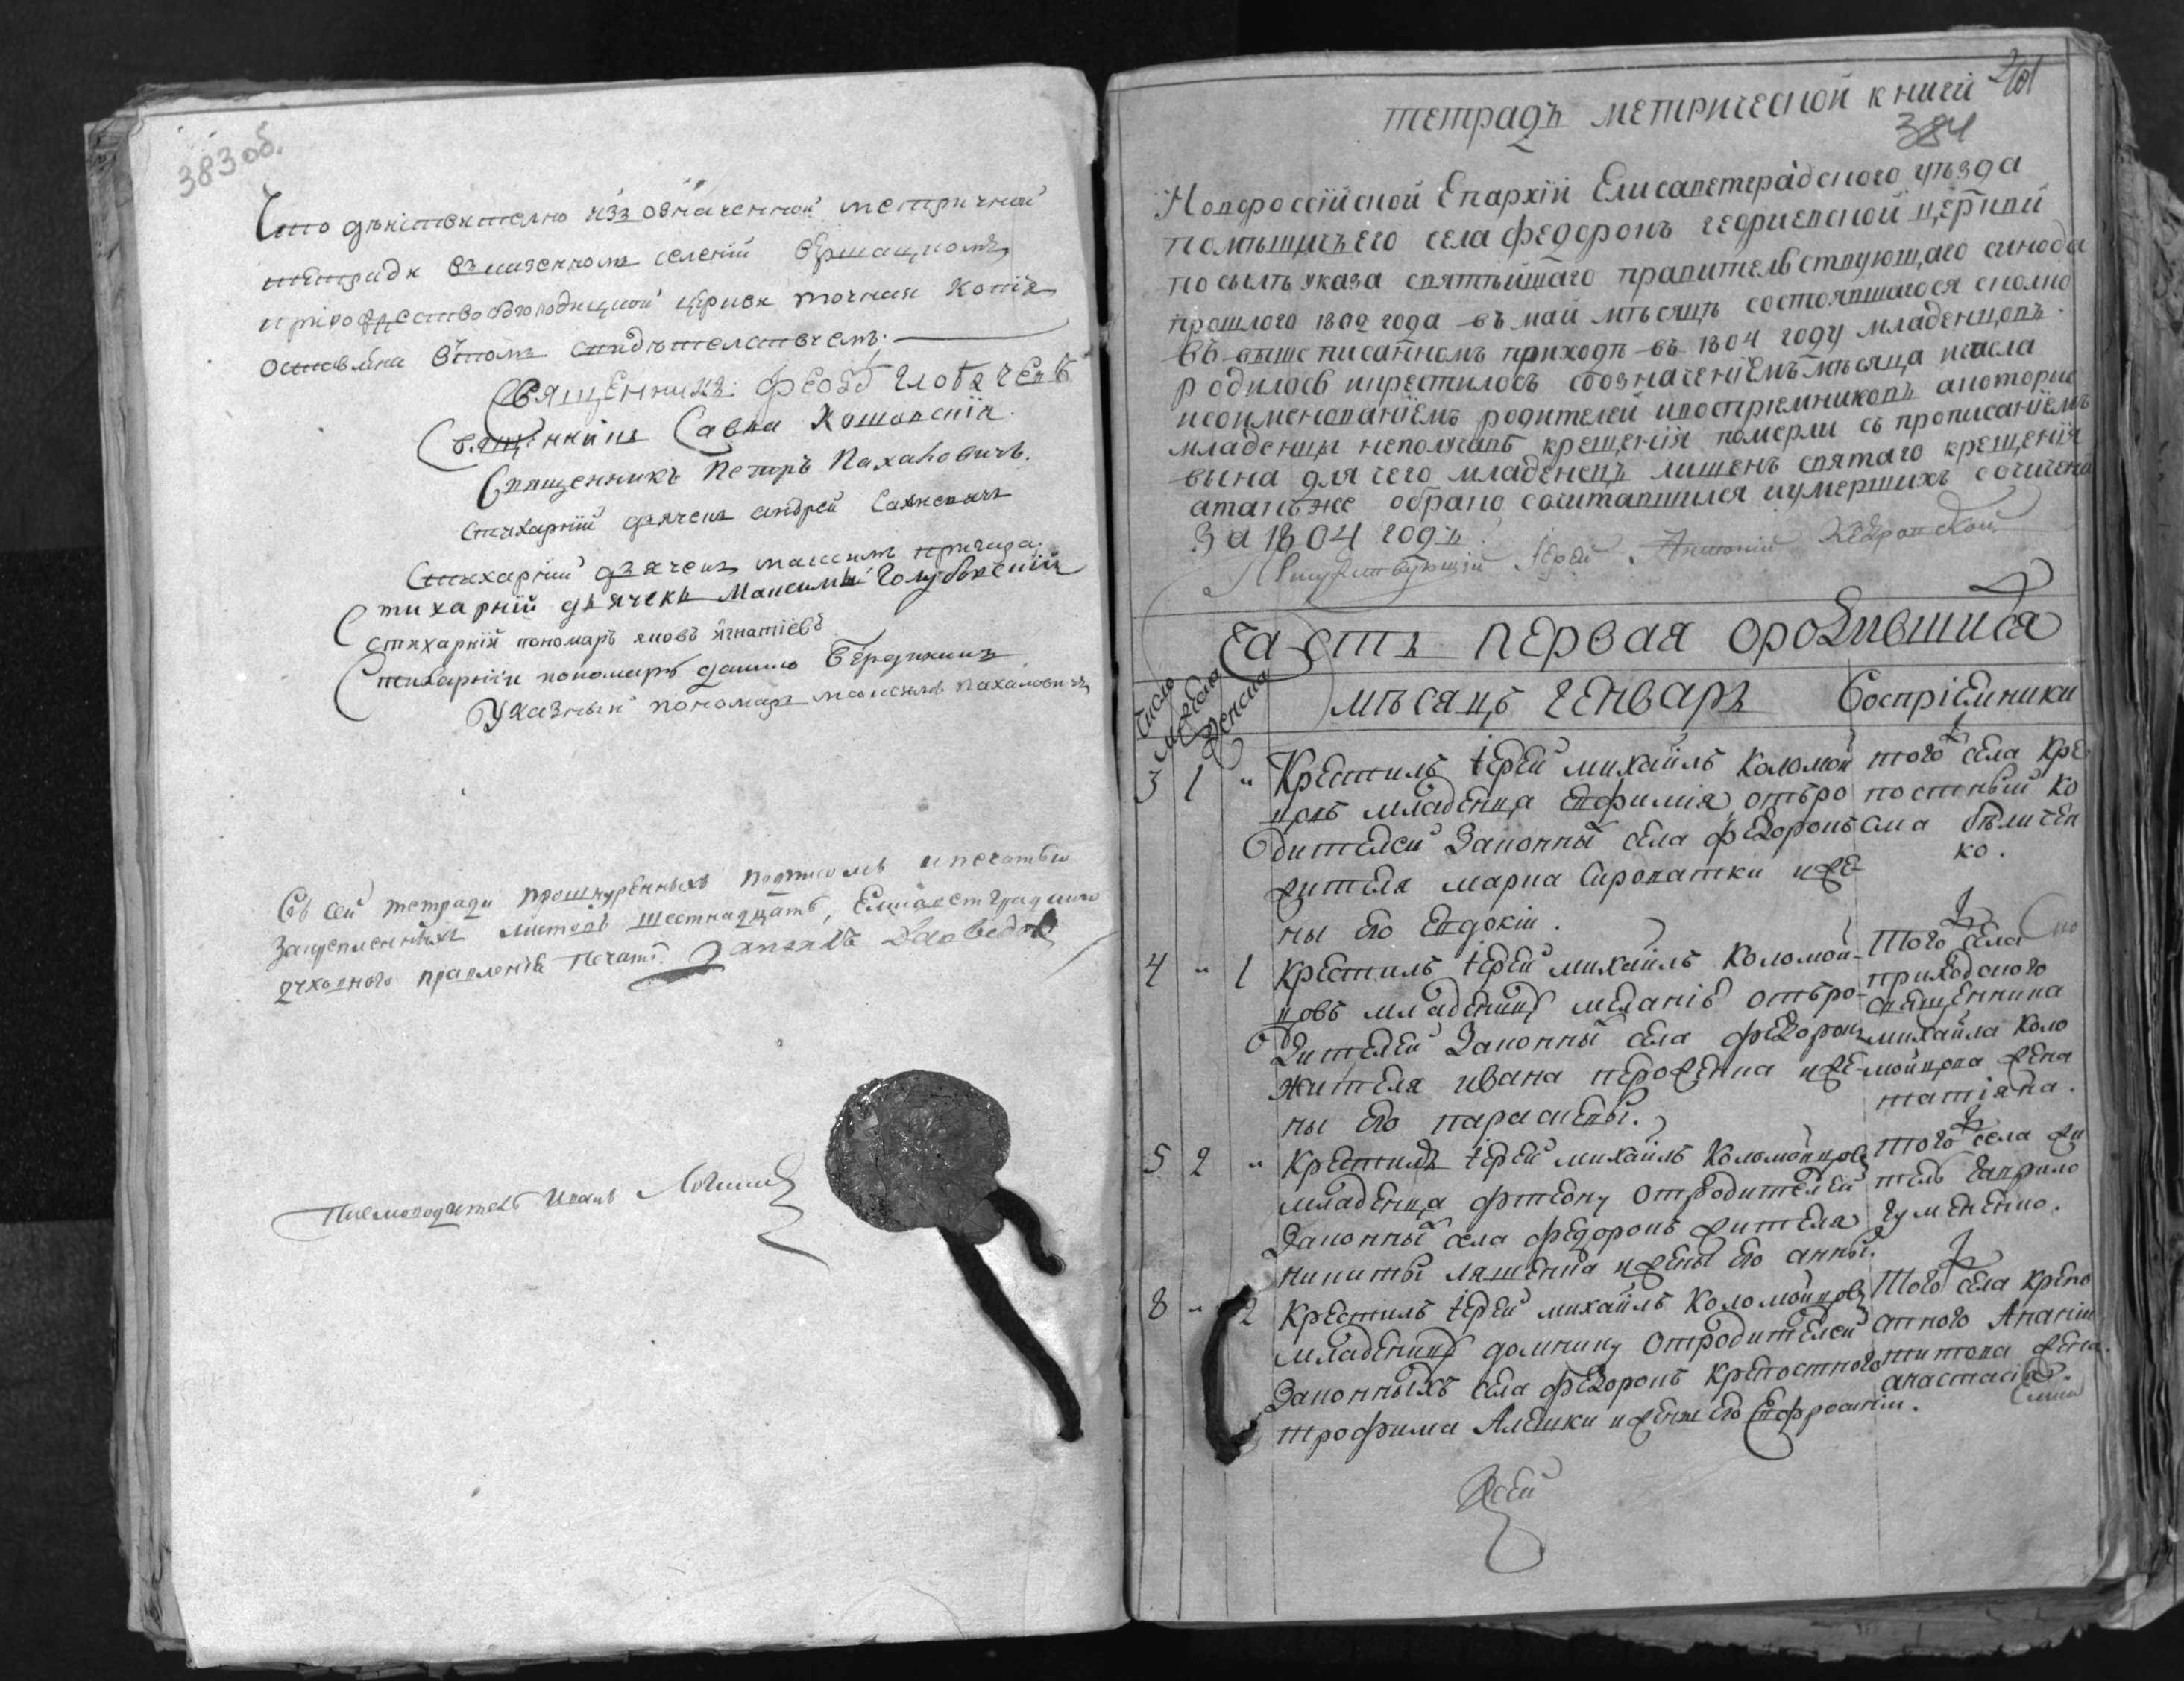 383 об.
Что дѣйствително изъ означенной метричной
тетради въ казенномъ селеніи
и рождество богородицкой церкви точная копія
оставлена въ томъ свидѣтелствуемъ.
Священникъ Феодоръ
Священникъ Савва
Священникъ Петръ Пахаловичъ.
Стихарній дьячекъ андрей
Стихарній дьячекъ максимъ
Стихарній дьячекъ Максимъ Голубовскій
Стихарній пономаръ яковъ игнатіевъ
Стихарній пономаръ данило
Указный пономаръ максимъ пахаловичъ
Въ сей тетради прошнуренныхъ подписомъ и печатью
закрепленныхъ листовъ шестнадцать, Елисаветградского
духовного правленія печать.
Писмоводитель Иванъ
тетрадь метрической книги
384
Новороссійской Епархіи Елисаветградского уѣзда
помѣщичьего села федоровъ георгиевской церкви
по силѣ указа святѣйшаго правительствующаго синода
прошлого 1802 года въ май мѣсяцѣ состоявшагося сколко
въ выше писанномъ приходѣ въ 1804 году младенцовъ
родилось икрестилось собозначеніемъ мѣсяца ичисла
исоименованіемъ родителей ивоспріемниковъ акоторые
младенцы неполучивъ крещенія померли съ прописаніемъ
вина для чего младенецъ лишенъ святаго крещенія
атакъ же обрано сочитавшихся иумершихъ сочинена
За 1804 годъ
Іерей Антоній
Часть первая ородившихся
Число
Мужеска
Женска
мѣсяцъ генваръ
Воспріемники
3 1 „ Крестилъ іерей михаилъ Коломой
цовъ младенца Евфимія отъро
дителей Законны села федоровъ
жителя марка Сироватки иже
ны его Евдокіи.
того села Кре
постный Ко
сма бѣличен
ко.
4 „ 1 Крестилъ іерей михаилъ Коломой-
цовъ младеницу меланію отъро-
дителей Законны села федоровъ
жителя ивана иже-
ны его параскевы.
того села
приходского
священника
михаила Коло
мойцова жена
татіяна.
5 2 „ Крестилъ іерей михаилъ Коломойцовъ
младенца отродителей
Законны села федоровъ жителя
никиты ляшенка ижены его анны.
того села жи
тель гаврило
гуменено.
8 „ 2 Крестилъ іерей михаилъ Коломойцовъ
младеницу домникиу отродителей
Законныхъ села федоровъ крепостного
трофима Алешки ижены его Евфросиніи.
того села крепо
стного Ананіи
титова жена
анастасія.